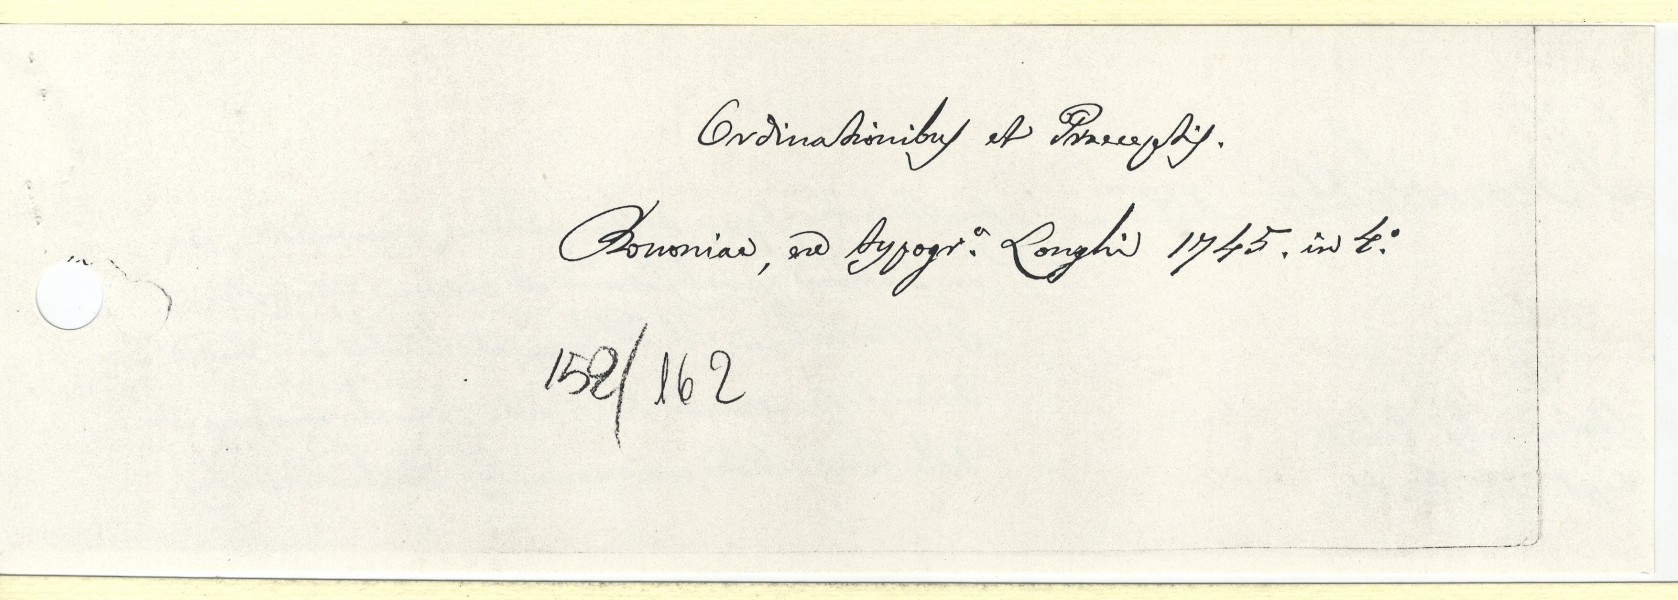 Ordinationibus et Praeceptis.
Bononiae, ex typogr.ª Longhi 1745. in 4.º
152/162